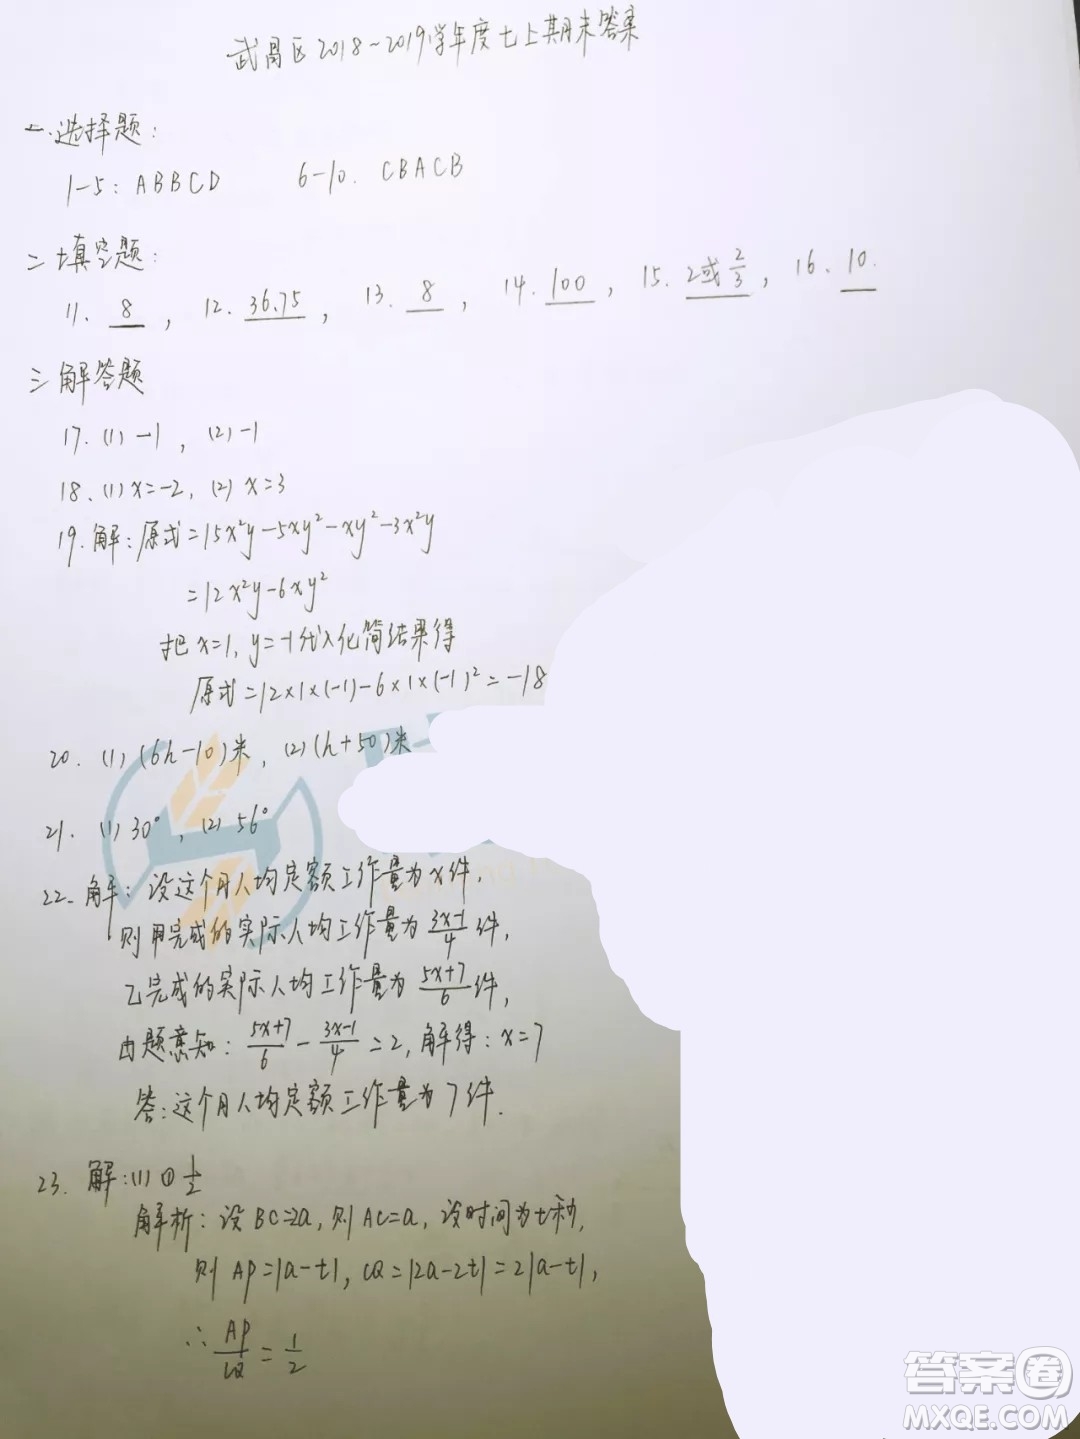 武昌区2018~2019学年度七上期末答案
一.选择题:
1-5: ABBCD 6-10. CBACB
二填空题:
11. 8 , 12. 36.75 , 13. 8 , 14. 100 , 15. 2或2/3 , 16. 10.
三解答题
17. (1) -1 , (2) -1
18. (1) x=-2, (2) x=3
19. 解: 原式=15x²y-5xy²-xy²-3x²y
=12x²y-6xy²
把x=1, y=-1代入化简结果得
原式=12×1×(-1)-6×1×(-1)²=-18
20. (1) (6h-10)米, (2) (h+50)米
21. (1) 30°, (2) 56°
22. 解: 设这个月人均定额工作量为x件,
则甲完成的实际人均工作量为(3x-1)/4件,
乙完成的实际人均工作量为(5x+7)/6件,
由题意知: (5x+7)/6 - (3x-1)/4 = 2, 解得: x=7
答: 这个月人均定额工作量为7件.
23. 解: (1) ① 1/2
解析: 设BC=2a, 则AC=a, 设时间为t秒,
则AP=|a-t|, CQ=|2a-2t|=2|a-t|,
∴ AP/CQ = 1/2
答案圈
MXQE.COM